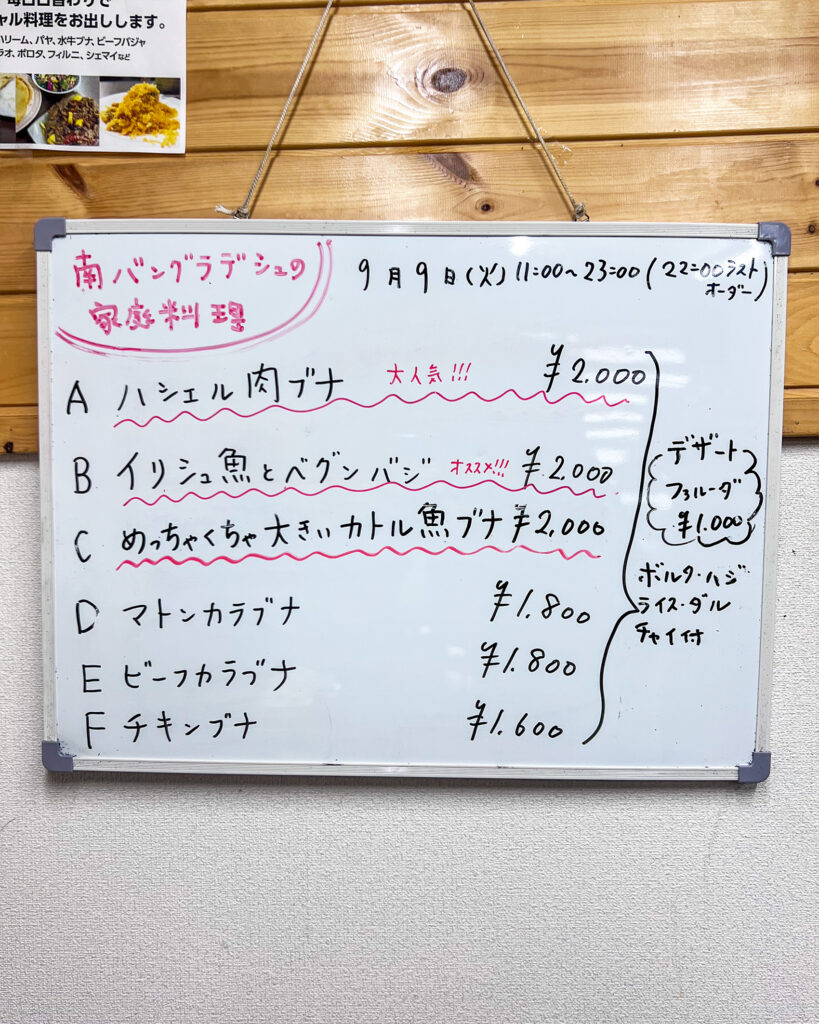 毎日日替わりで
ャル料理をお出しします。
ハリーム、パヤ、水牛ブナ、ビーフパジャ
ラオ、ポロタ、フィルニ、シェマイなど
南バングラデシュの
家庭料理
9月9日(火) 11:00〜23:00 (22:00ラスト
オーダー)
A ハシェル肉ブナ 大人気!!! ¥2.000
B イリシュ魚とベグンバジ オススメ!!! ¥2.000
C めっちゃくちゃ大きいカトル魚ブナ ¥2,000
D マトンカラブナ ¥1.800
E ビーフカラブナ ¥1.800
F チキンブナ ¥1.600
デザート
ファルーダ
¥1.000
ボルタ・バジ
ライス・ダル
チャイ付